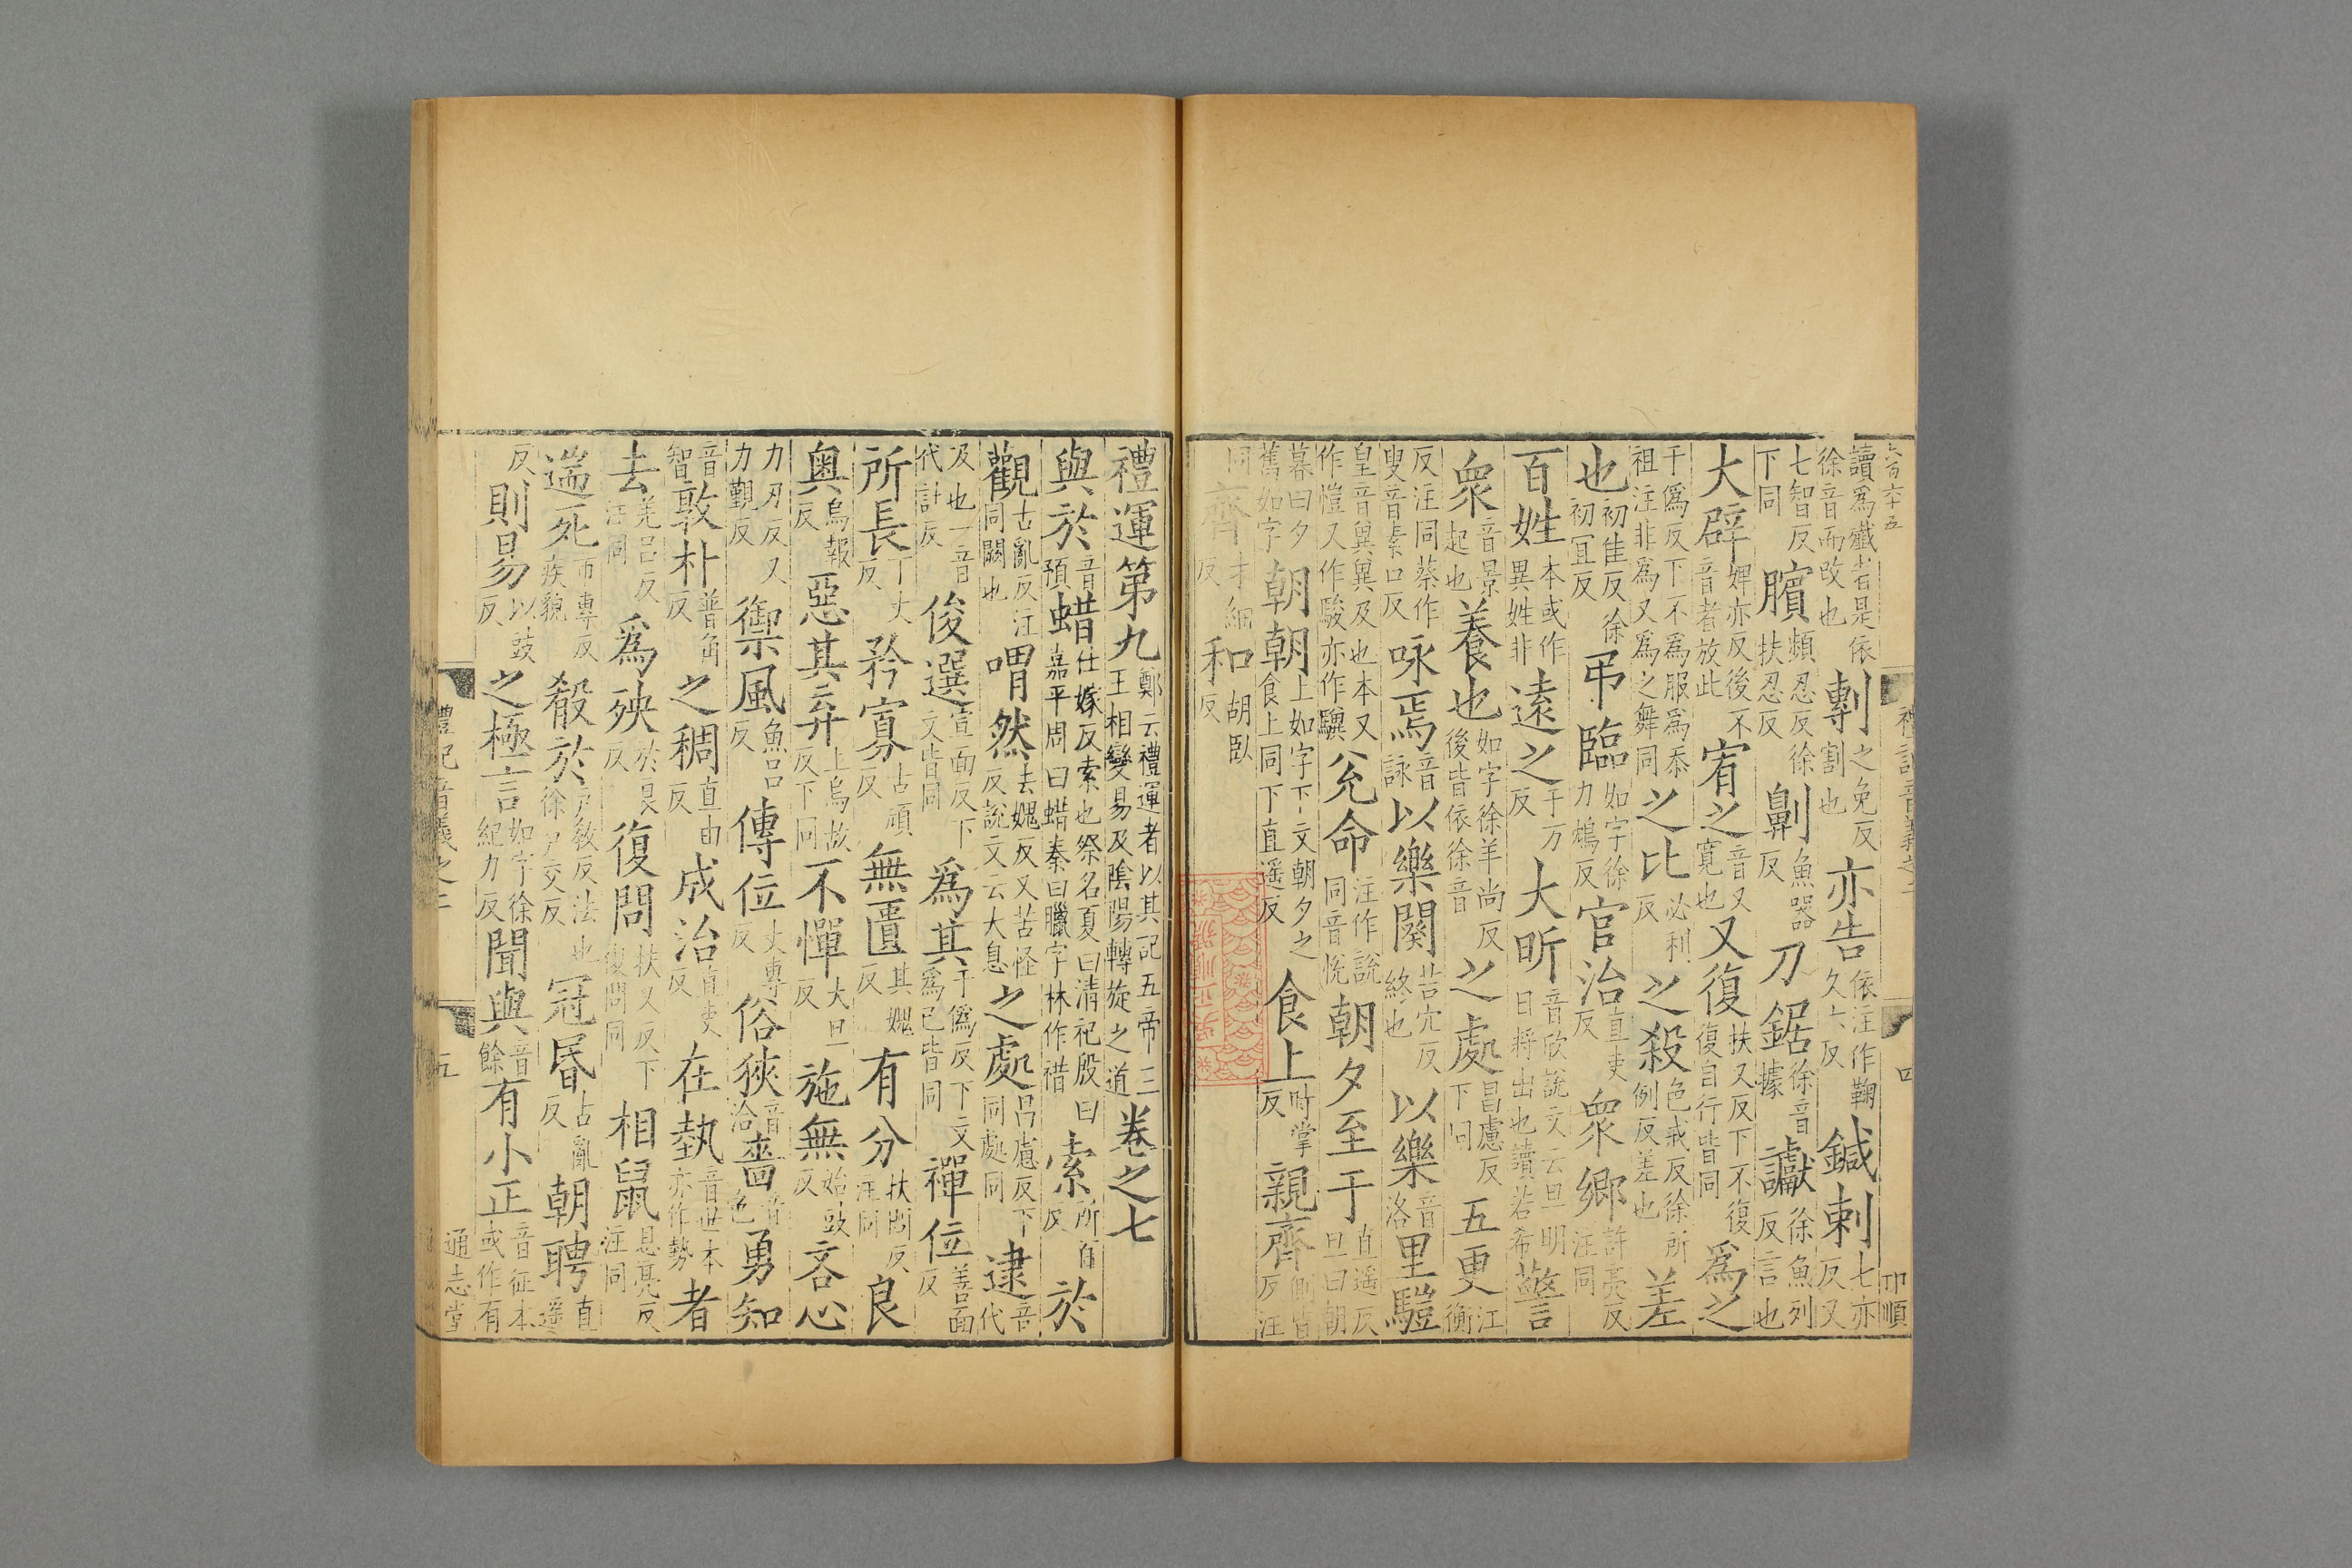 六百六十五 禮記音義之二 四 卬順
讀爲殲者是依徐音而改也剸之免反割也亦告依注作鞠久六反鍼刺七亦反又
七智反下同臏頻忍反徐扶忍反劓魚器反刀鋸徐音據讞徐魚列反言也
大辟婢亦反後不音者放此宥之音又寬也又復扶又反下不復復自行皆同爲之
于僞反下不爲服爲忝祖注非爲又爲之舞同之比必利反之殺色戒反徐所例反差也差
也初佳反徐初宜反弔臨如字徐力鴆反官治直吏反衆鄉許亮反注同
百姓本或作異姓非遠之于万反大昕音欣說文云旦明日將出也讀若希警
衆音景起也養也如字徐羊尚反後皆依徐音之處昌慮反下同五更江衡
反注同蔡作叟音素口反咏焉音詠以樂闋苦穴反終也以樂音洛里𩥉
皇音冀冀及也本又作愷又作駿亦作驥兊命注作說同音悅朝夕至于直遥反旦曰朝
暮曰夕舊如字朝朝上如字下文朝夕之食上同下直遥反食上時掌反親齊側皆反注
同齊才細反和胡臥反
禮運第九鄭云禮運者以其記五帝三王相變易及陰陽轉旋之道卷之七
與於音預蜡仕嫁反索也祭名夏曰清祀殷曰嘉平周曰蜡秦曰臘字林作䄍索所百反於
觀古亂反注同闕也喟然去媿反又苦怪反說文云大息之處昌慮反下同處同逮音代
及也一音代計反俊選宣面反下文皆同爲其于僞反下文爲己皆同禪位善面反
所長丁丈反矜寡古頑反無匱其媿反有分扶問反注同良
奧烏報反惡其弃上烏故反下同不憚大旦反施無始豉反吝心
力刃反又力覲反御風魚呂反傳位丈專反俗狹音洽嗇音色勇知
音智敦朴普角反之稠直由反成治直吏反在埶音世本亦作勢者
去羌呂反注同爲殃於良反復問扶又反下復問同相鼠息亮反注同
遄死市專反疾貌殽於戶教反法也徐戶交反冠昬古亂反朝聘直遥
反則易以豉反之極言如字徐紀力反聞與音餘有小正音征本或作有
禮記音義之二 五 通志堂